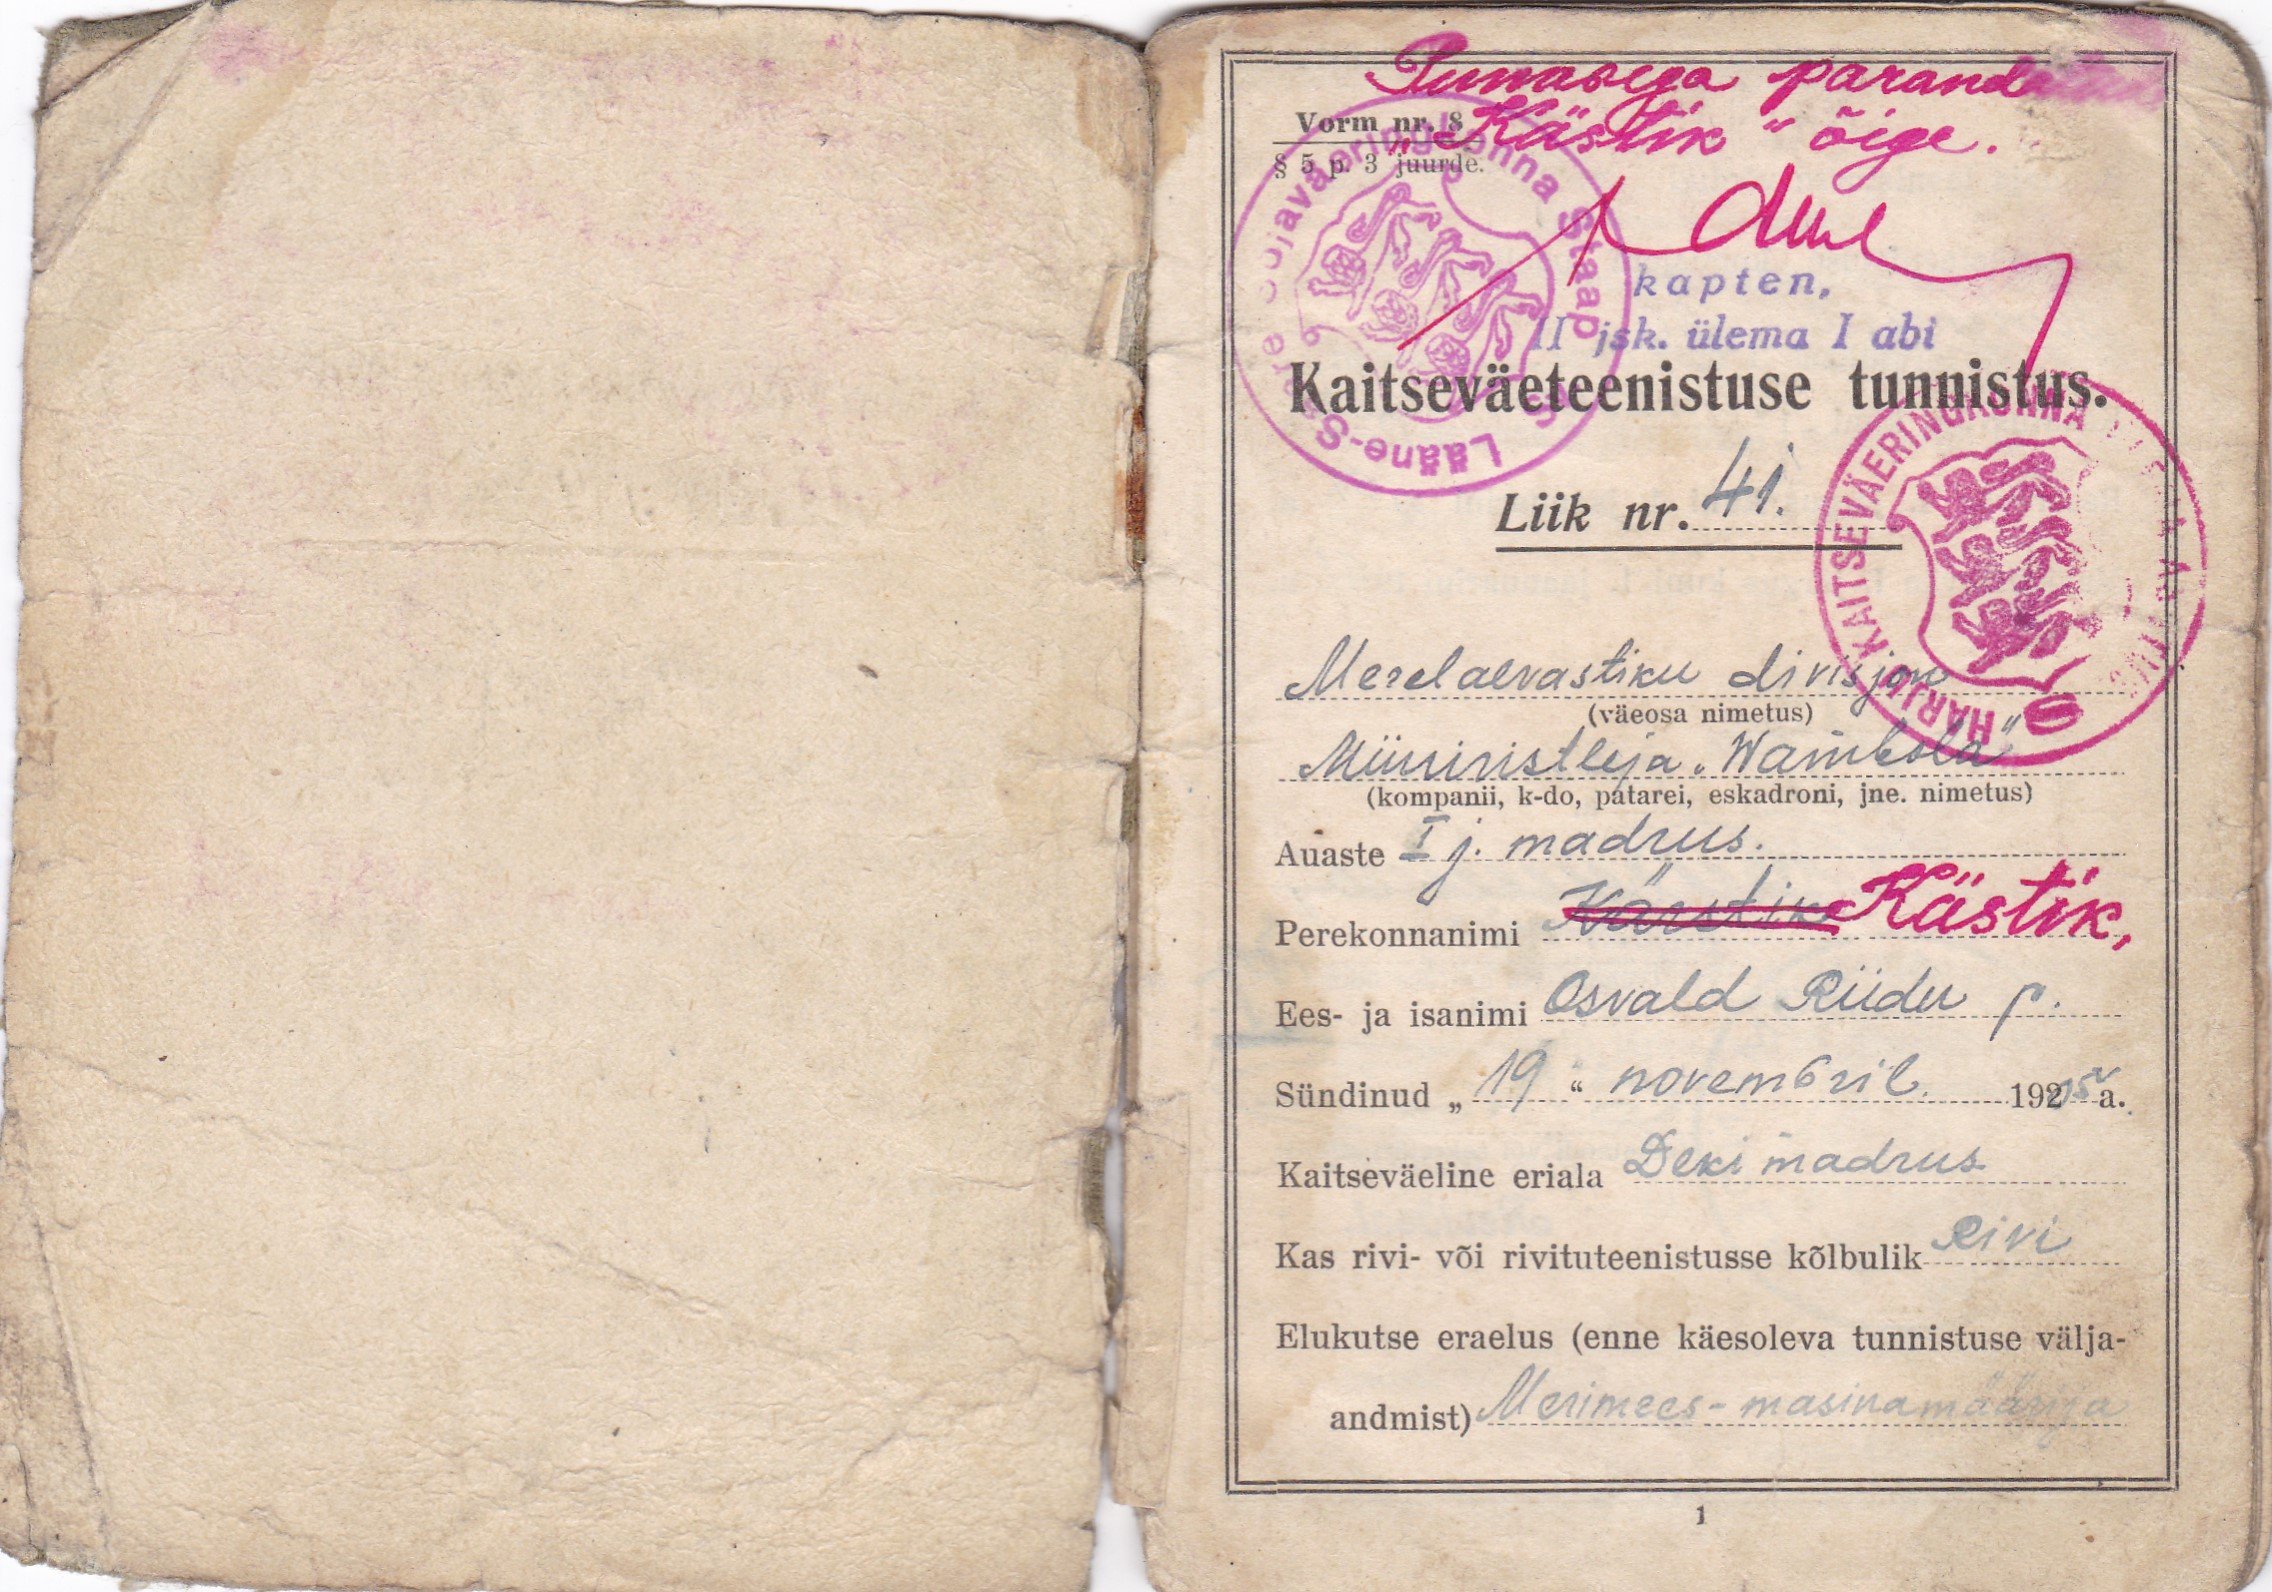 Punasega parandatud
Vorm nr. 8
„Kästik“ õige.
§ 5 p. 3 juurde.
Lääne-Saare Sõjaväeringkonna Staap
kapten,
II jsk. ülema I abi
Kaitseväeteenistuse tunnistus.
HARJU KAITSEVÄERINGKONNA
Liik nr. 41.
Merelaevastiku divisjon
(väeosa nimetus)
Miiniristleja „Wambola“
(kompanii, k-do, patarei, eskadroni, jne. nimetus)
Auaste I j. madrus.
Perekonnanimi Kästik,
Ees- ja isanimi Osvald Riidu p.
Sündinud „19“ novembril 1905 a.
Kaitseväeline eriala Dekimadrus
Kas rivi- või rivituteenistusse kõlbulik Rivi
Elukutse eraelus (enne käesoleva tunnistuse välja-
andmist) Merimees-masinamäärija
1